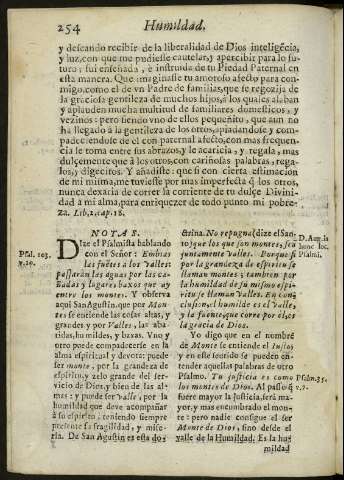 254 Humildad.
y deseando recibir de la liberalidad de Dios inteligẽcia,
y luz, con que me pudiesse cautelar, y apercibir para lo fu-
turo; fui enseñada, è instruida de tu Piedad Paternal en
esta manera. Que imaginasse tu amoroso afecto para con-
migo, como el de vn Padre de familias, que se regozija de
la graciosa gentileza de muchos hijos, à los quales alaban
y aplauden mucha multitud de familiares domesticos, y
vezinos: pero siendo vno de ellos pequeñito, que aun no
ha llegado à la gentileza de los otros, apiadandose, y com-
padeciendose de èl con paternal afecto, con mas frequen-
cia le toma entre sus abrazos, y le acaricia, y regala, mas
dulçemente que à los otros, con cariñosas palabras, rega-
los, y digecitos. Y añadiste: que si con cierta estimacion
de mi misma, me tuviesse por mas imperfecta q̃ los otros,
nunca dexaria de correr la corriente de tu dulçe Divini-
dad à mi alma, para enriquezer de todo punto mi pobre-
za. Lib. 2. cap. 18.
NOTAS.
DIze el Psalmista hablando
con el Señor: Embias
las fuẽtes à los Valles:
passaràn las aguas por las ca-
ñadas y lugares baxos que ay
entre los montes. Y observa
aqui San Agustin, que por Mon-
tes se entiende las cosas altas, y
grandes y por Valles, las aba-
tidas, humildes, y baxas. Vno y
otro puede compadecerse en la
alma espiritual y devota: puede
ser monte, por la grandeza de
espiritu, y zelo grande del ser-
vicio de Dios, y bien de las al-
mas: y puede ser Valle, por la
humildad que deve acompañar
à su espiritu, teniendo siempre
presente su fragilidad, y mise-
ria. De San Agustin es esta doc-
Psal. 103.
v. 10.
ctrina. No repugna (dize el San-
to) que los que son montes, sea
juntamente Valles. Porque si
por la grandeza de espiritu se
llaman montes; tambien por
la humildad de su mismo espi-
ritu se llaman Valles. En con-
clusion, el humilde es el Valle,
y la fuente, que corre por èl, es
la gracia de Dios.
Yo digo que en el nombre
de Monte se entiende el Iusto;
y en este sentido se pueden en-
tender aquellas palabras de otro
Psalmo. Tu justicia es como
los montes de Dios. Al passo q̃
fuere mayor la Justicia, serà ma-
yor, y mas encumbrado el mon-
te: pero nadie consigue el ser
Monte de Dios, sino desde el
valle de la Humildad. Es la hu-
mildad
D. Aug. in
hunc loc.
Psalmi.
Psalm. 35.
v. 7.